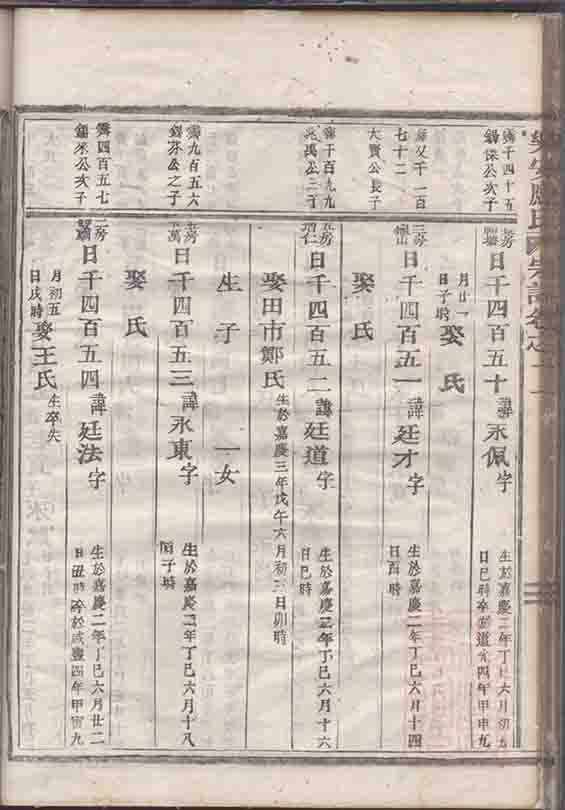 霽千四十五
錫傑公次子
日千四百五十 諱永佩字
生於嘉慶二年丁巳六月初九
日巳時卒於道光四年甲申九
月廿一
日子時
娶氏
父千一百
七十二
大賓公長子
三房
日千四百五一 諱廷才字
生於嘉慶二年丁巳六月十四
日酉時
娶氏
霽千百九九
公三子
日千四百五二 諱廷道字
生於嘉慶二年丁巳六月十六
日巳時
娶田市鄭氏
生於嘉慶三年戊午六月初三日卯時
生子 一女
霽九百五六
錫芬公之子
日千四百五三 諱永東字
生於嘉慶二年丁巳六月十八
日子時
娶氏
霽四百五七
錫采公次子
日千四百五四 諱廷法字
生於嘉慶二年丁巳六月廿二
日丑時卒於咸豐四年甲寅九
月初五
日戌時
娶王氏
生卒失